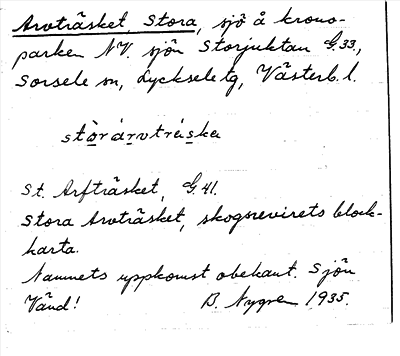 Arvträsket, Stora, sjö å krono-
parken NV. sjön Storjuktan G.33.,
Sorsele sn, Lycksele tg, Västerb. l.
stòrárvtráska
St. Arfträsket, G.41.
Stora Arvträsket, skogsrevirets block-
karta.
Namnets uppkomst obekant. Sjön
Vänd! B. Nygren 1935.